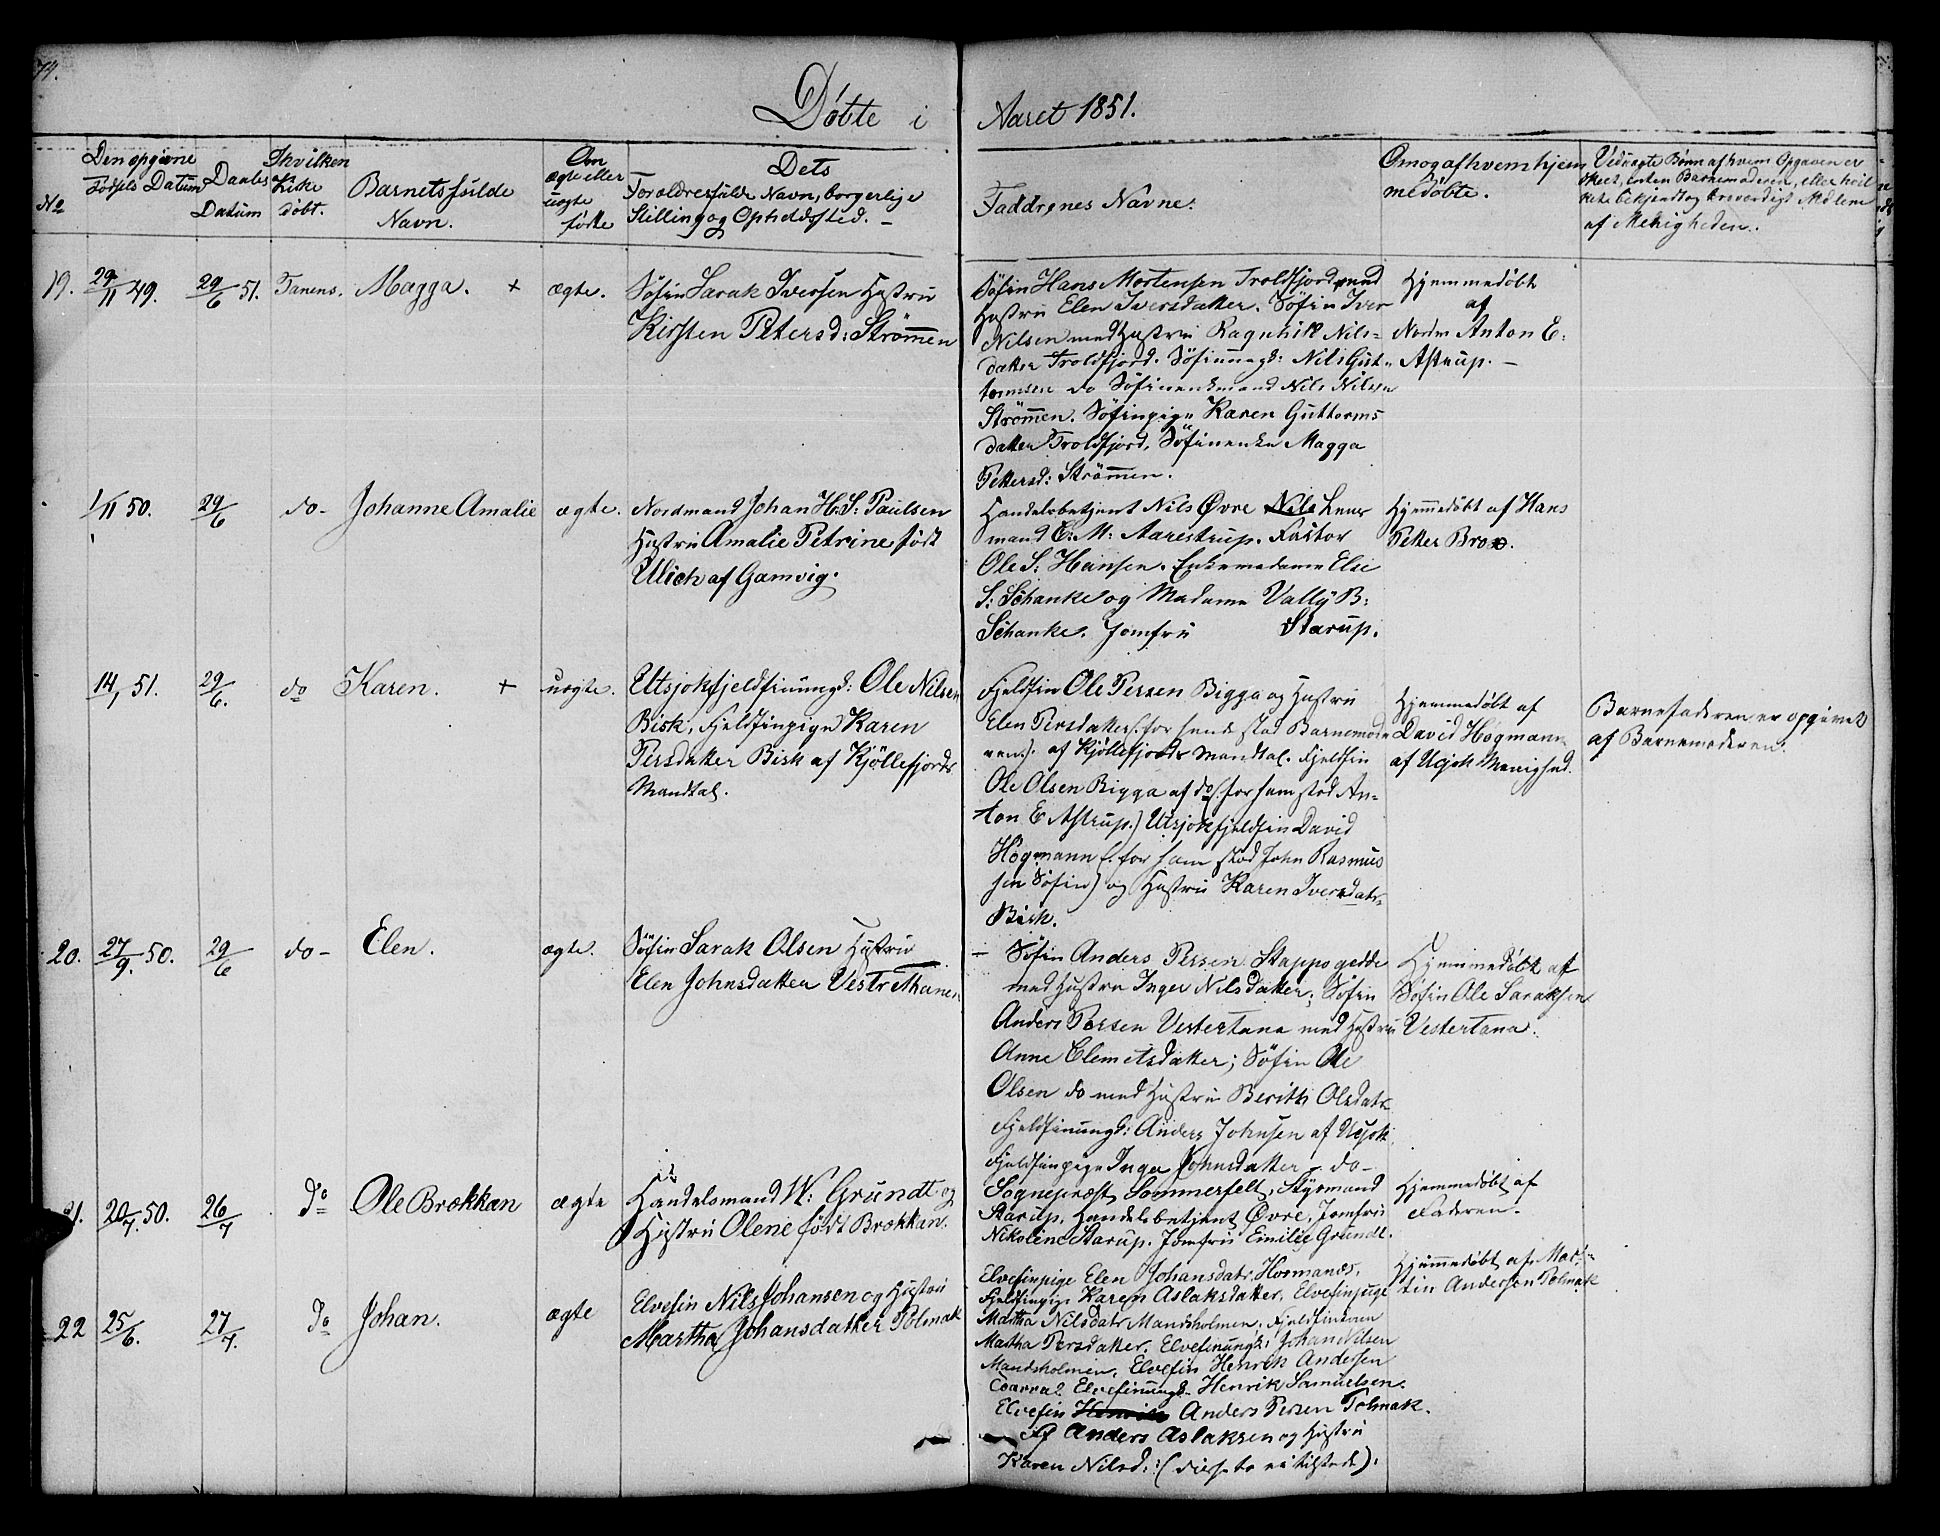 74.
Döbte i Aaret 1851.
No
Den opgivne Fødsels Datum
Daabs Datum
I hvilken Kirke døbt.
Barnets fulde Navn.
Om ægte eller uægte fødte
Dets Forældres fulde Navn, borgerlige Stilling og Opholdssted. –
Faddrenes Navne.
Om og af hvem hjemmedøbte.
Ved uægte Børn af hvem Opgaven er skeet, enten Barnemoderen, eller hvilket bekjendt og troværdigt Medlem af Menigheden.
19. 29/11 49. 29/6 51. Tanens. Magga. + ægte.
Søfin Sarak Iversen Hustru
Kirsten Petersd: Strømmen
Søfin Hans Mortensen Troldfjord med
Hustru Elen Iversdatter. Søfin Iver
Nilsen med Hustru Ragnhild Nils-
datter Troldfjord. Søfinungk: Nils Gut-
tormsen do Søfinenkemand Nils Nilsen
Strømmen. Søfinpige Karen Guttorms
datter Troldfjord, Søfinenke Magga
Pettersd: Strømmen.
Hjemmedøbt
af
Nordm Anton E.
Astrup. –
1/11 50. 29/6 do – Johanne Amalie ægte.
Nordmand Johan H. S. Paulsen
Hustru Amalie Petrine født
Ulich af Gamvig.
Handelsbetjent Nils Øvre Nils Lens
mand C. M. Aarestrup. Pastor
Ole S. Hansen. Enkemadame Else
S. Schanke og Madame Vally B.
Schanke. Jomfru Starup.
Hjemmedøbt af Hans
Petter Broe.
14/1 51. 29/6. do Karen. + uægte.
Utsjokfjeldfinungk: Ole Nilsen
Bisk, Fjeldfinpige Karen
Persdatter Bisk af Kjöllefjords
Mandtal.
Fjeldfin Ole Persen Bigga og Hustru
Elen Persdatter (for hende stod Barnemode
ren). af Kjöllefjords Mandtal. Fjeldfin
Ole Olsen Bigga af do (for ham stod An-
ton E Astrup.) Utsjokfjeldfin David
Högmann (for ham stod John Rasmus
sen Søfin) og Hustru Karen Iversdatr
Bisk.
Hjemmedøbt af
David Högmann
af Ucjok Menighed.
Barnefaderen er opgivet
af Barnemoderen.
20. 27/9. 50. 29/6 do – Elen. ægte.
Søfin Sarak Olsen Hustru
Elen Johnsdatter Vestre Thanen
– Søfin Anders Persen Stappogedde
med Hustru Inger Nilsdatter; Søfin
Anders Persen Vestertana med Hustru
Anne Clemetsdatter; Søfin Ole
Olsen do med Hustru Berith Olsdatr
Fjeldfinungk: Anders Johnsen af Ucjok
Fjeldfinpige Inga Johnsdatter – do –
Hjemmedøbt af
Søfin Ole Saraksen
Vestertana.
21. 20/7. 50. 26/7 do Ole Brækkan ægte
Handelsmand W. Grundt og
Hustru Olene født Brækkan.
Sognepræst Sommerfelt, Styrmand
Starup, Handelsbetjent Øvre, Jomfru
Nikoline Starup. Jomfru Emilie Grundt.
Hjemmedøbt af
Faderen.
22 25/6. 27/7. do Johan. ægte
Elvefin Nils Johansen og Hustru
Martha Johansdatter Polmak
Elvefinpige Elen Johansdatr Hosmanæs,
Fjeldfinpige Karen Aslaksdatter, Elvefinpige
Martha Nilsdatr Mandsholmen, Fjeldfinkonen
Martha Persdatter. Elvefinungk: Johan Nilsen
Mandsholmen. Elvefin Henrik Andersen
Elvefinungk. Henrik Samuelsen.
Elvefin Henrik Anders Persen Polmak.
Ff Anders Aslaksen og Hustru
Karen Nilsd: (disse to ei tilstede).
Hjemmedøbt af Mar-
tin Andersen Polmak